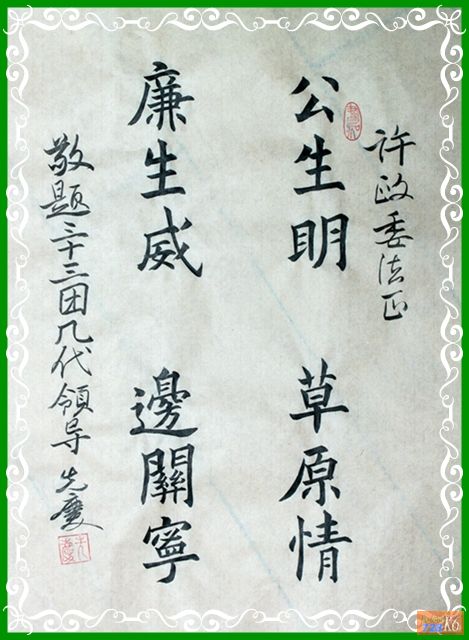 许政委法正
公生明 草原情
廉生威 邊關寧
敬题三十三团几代领导 先慶